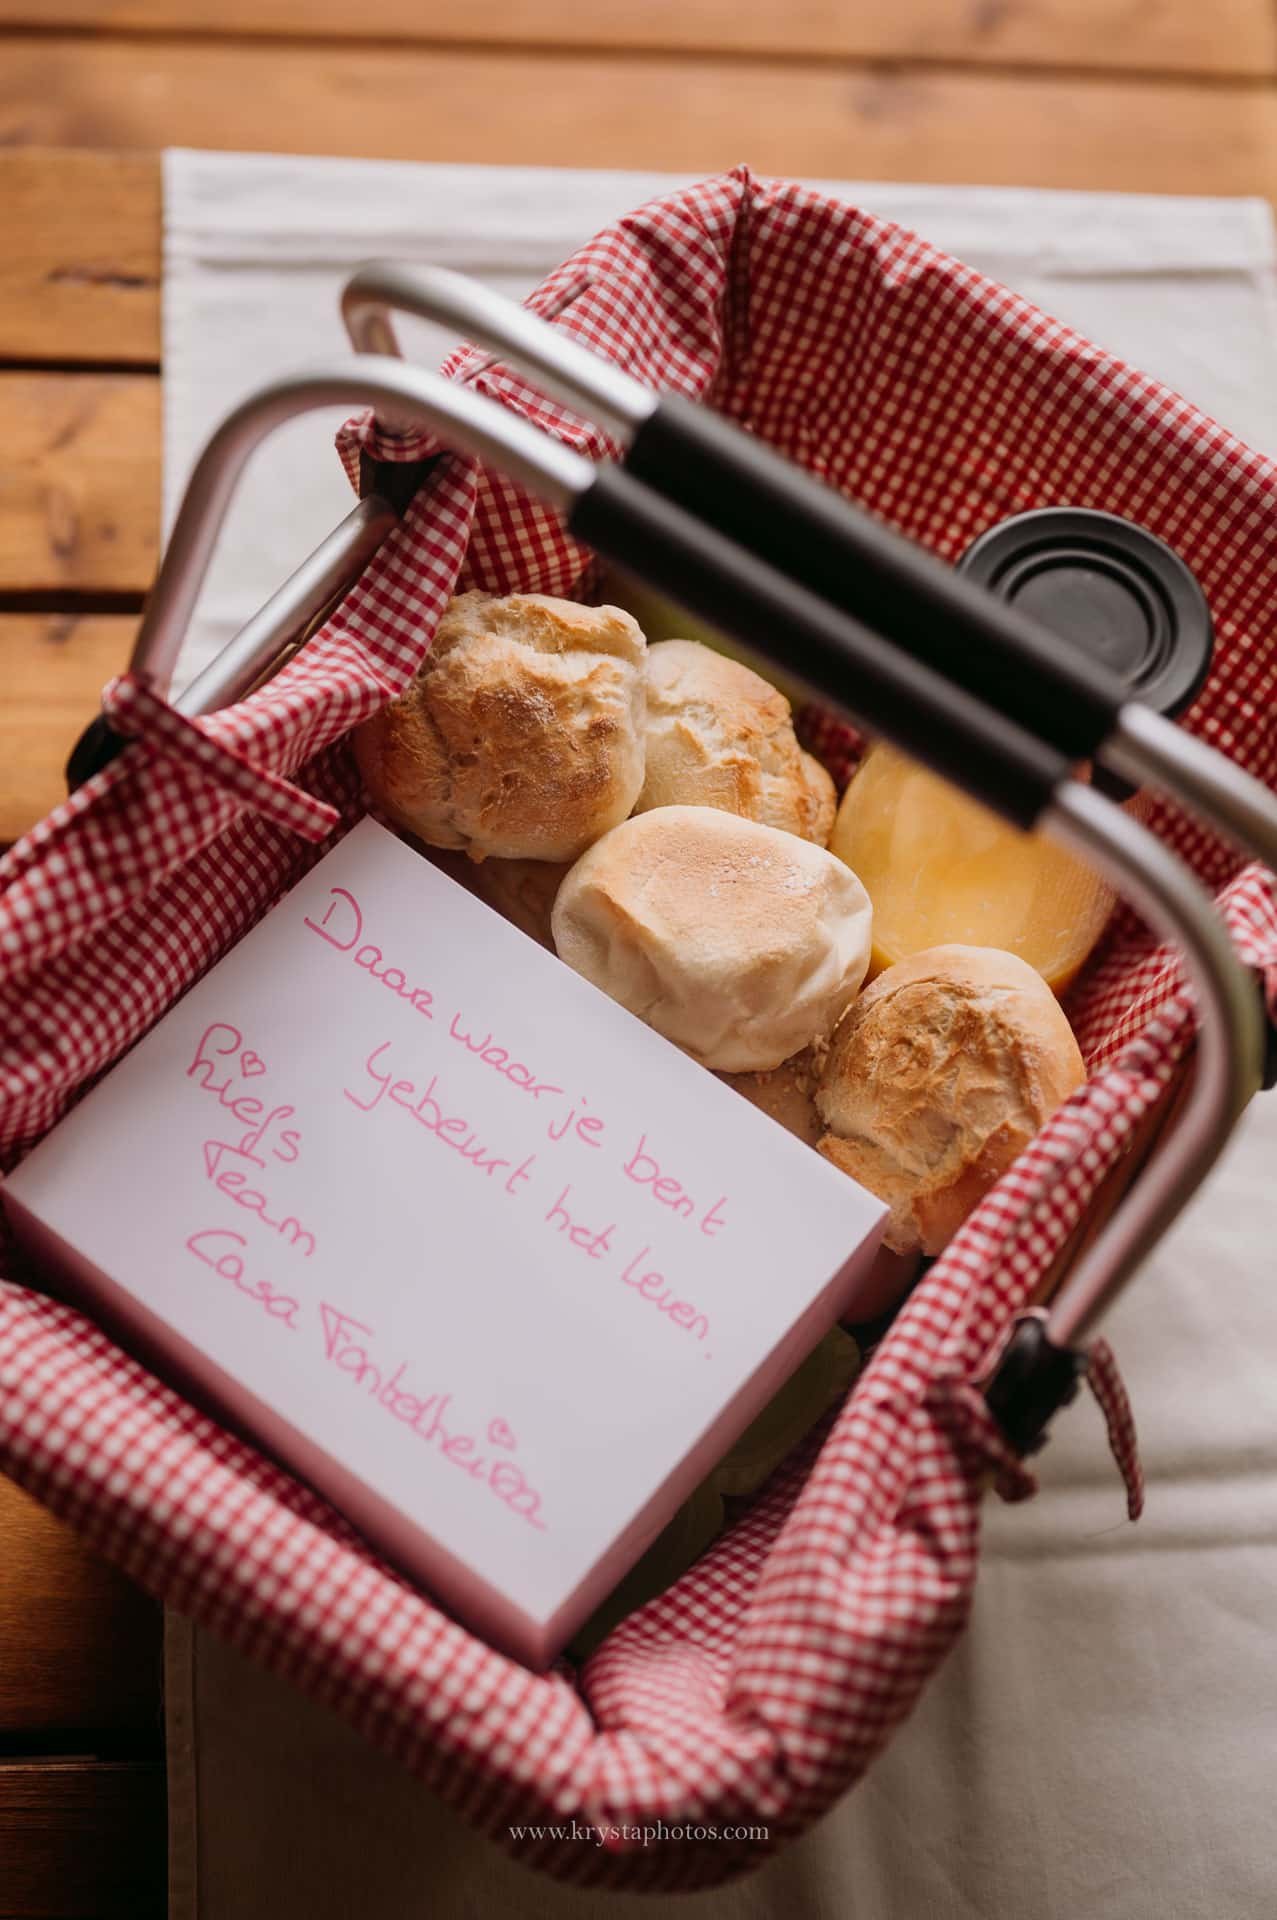 Daar waar je bent
gebeurt het leven.
Liefs
Team
Casa Fontelheira
www.krystaphotos.com